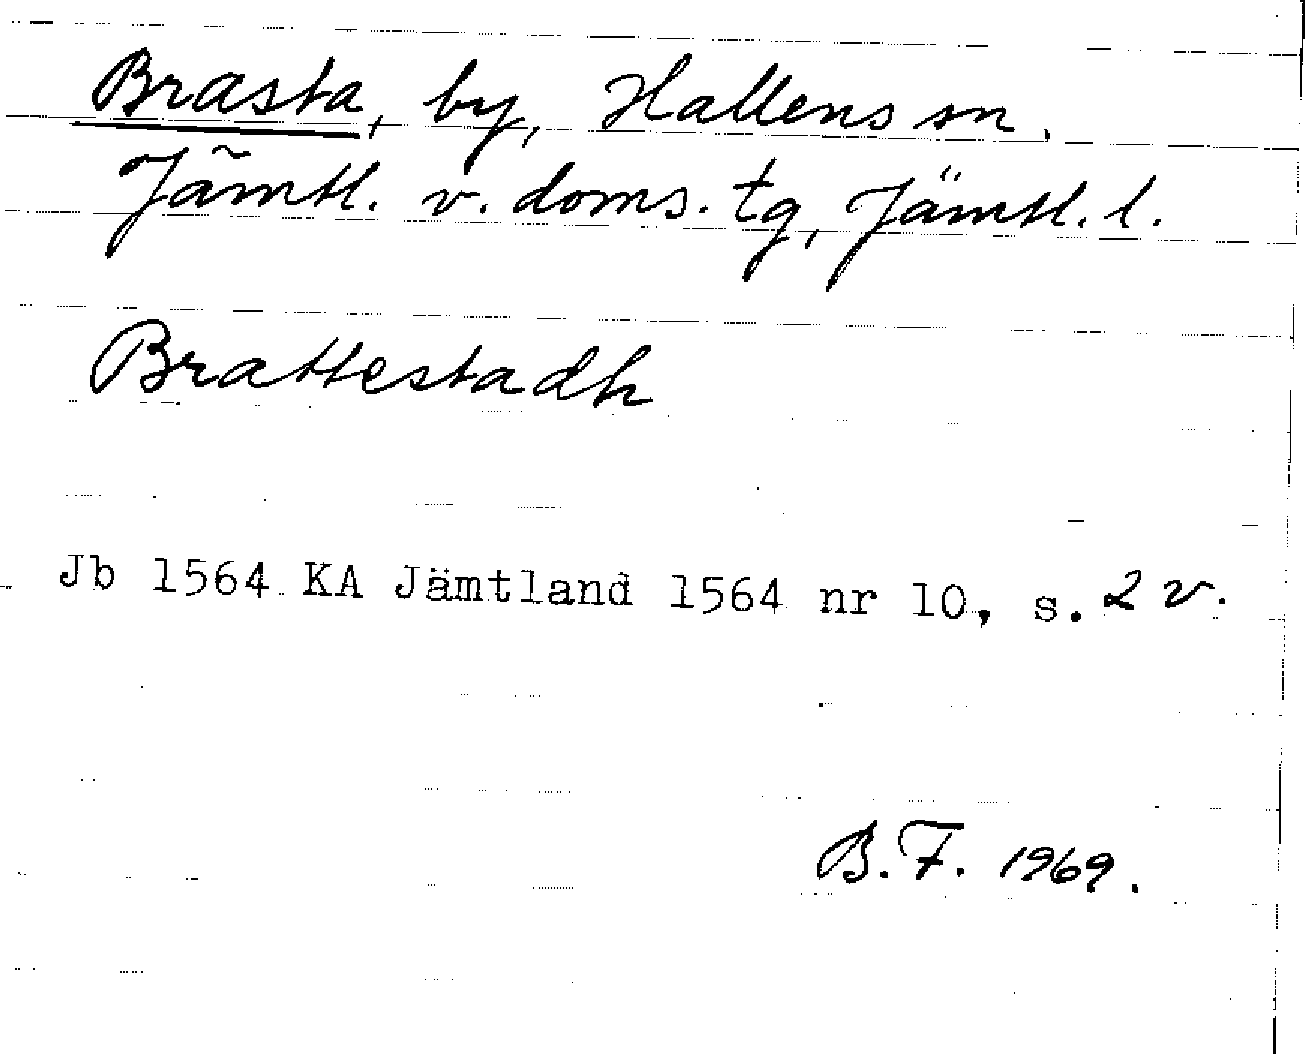 Brasta, by, Hallens sn.
Jämtl. v. doms. tg, Jämtl. l.
Brattestadh
Jb 1564 KA Jämtland 1564 nr 10, s. 2 v.
B.F. 1969.